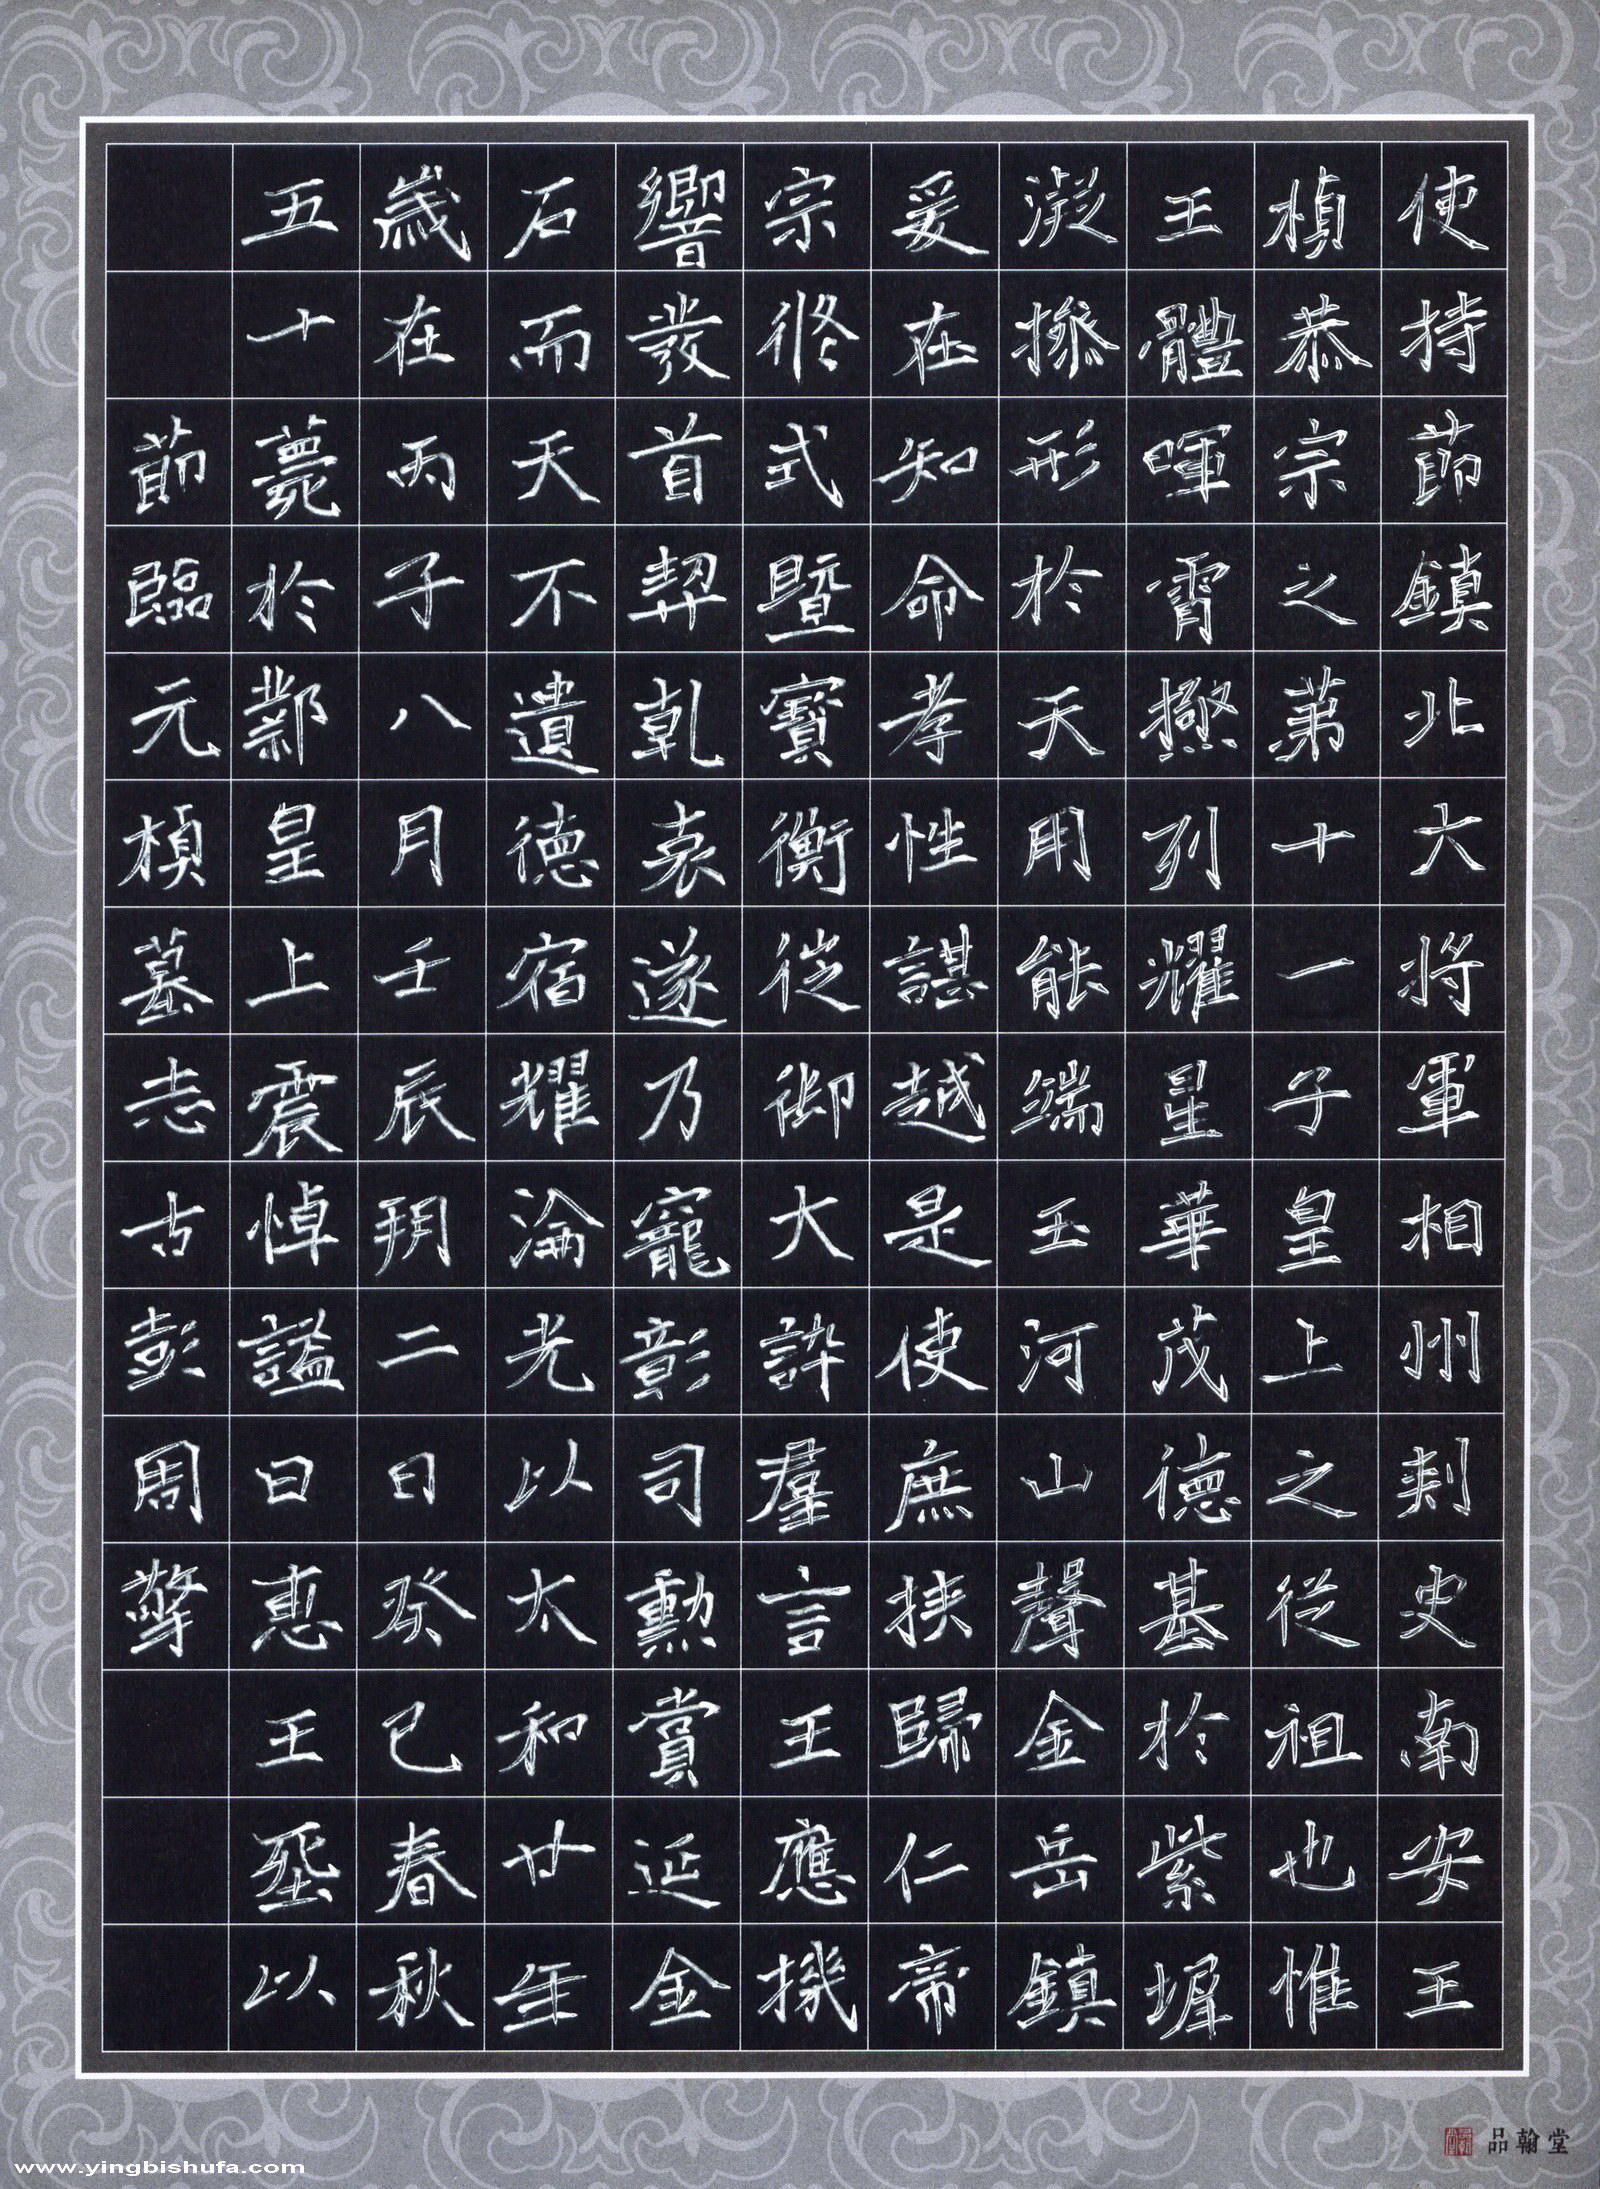 使持節鎮北大將軍相州刺史南安王
楨恭宗之第十一子皇上之從祖也惟
王體暉霄極列耀星華茂德基於紫墀
凝操形於天用能端玉河山聲金岳鎮
爰在知命孝性諶越是使庶族歸仁帝
宗攸式暨寶衡徙御大誶羣言王應機
響發首契乾衷遂乃寵彰司勳賞延金
石而天不遺德宿耀淪光以太和廿年
歲在丙子八月壬辰朔二日癸巳春秋
五十薨於鄴皇上震悼謚曰惠王葬以
節臨元楨墓志古彭周擎
品翰堂
www.yingbishufa.com